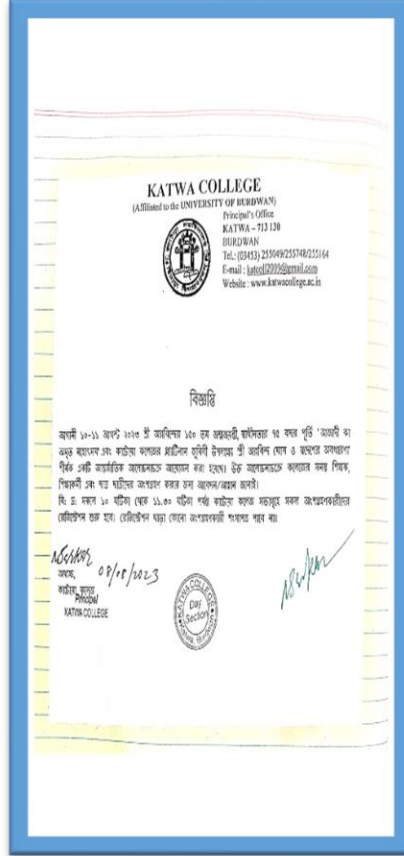 KATWA COLLEGE
(Affiliated to the UNIVERSITY OF BURDWAN)
Principal's Office
KATWA – 713 130
BURDWAN
Tel.: (03453) 255049/255748/255164
E-mail :
Website : www.katwacollege.ac.in
বিজ্ঞপ্তি
আগামী ১০-১১ আগস্ট ২০২৩ শ্রী অরবিন্দের ১৫০ তম জন্মজয়ন্তী, স্বাধীনতার ৭৫ বছর পূর্তি 'আজাদী কা
অমৃত মহোৎসব এবং কাটোয়া কলেজের প্লাটিনাম জুবিলী উপলক্ষে শ্রী অরবিন্দ ঘোষ ও
শীর্ষক একটি আন্তর্জাতিক আলোচনাচক্র আয়োজন করা হয়েছে। উক্ত আলোচনাচক্রে কলেজের সমস্ত শিক্ষক,
শিক্ষাকর্মী এবং ছাত্র ছাত্রীদের অংশগ্রহণ করার জন্য আবেদন/আহ্বান জানাই।
বি: দ্র: সকাল ১০ ঘটিকা থেকে ১১.৩০ ঘটিকা পর্যন্ত কাটোয়া কলেজ সভাগৃহে সকল অংশগ্রহণকারীদের
রেজিস্ট্রেশন শুরু হবে। রেজিস্ট্রেশন ছাড়া কোনো অংশগ্রহণকারী শংসাপত্র পাবে না।
অধ্যক্ষ,
08/08/2023
কাটোয়া কলেজ
Principal
KATWA COLLEGE
KATWA COLLEGE
Day
Section